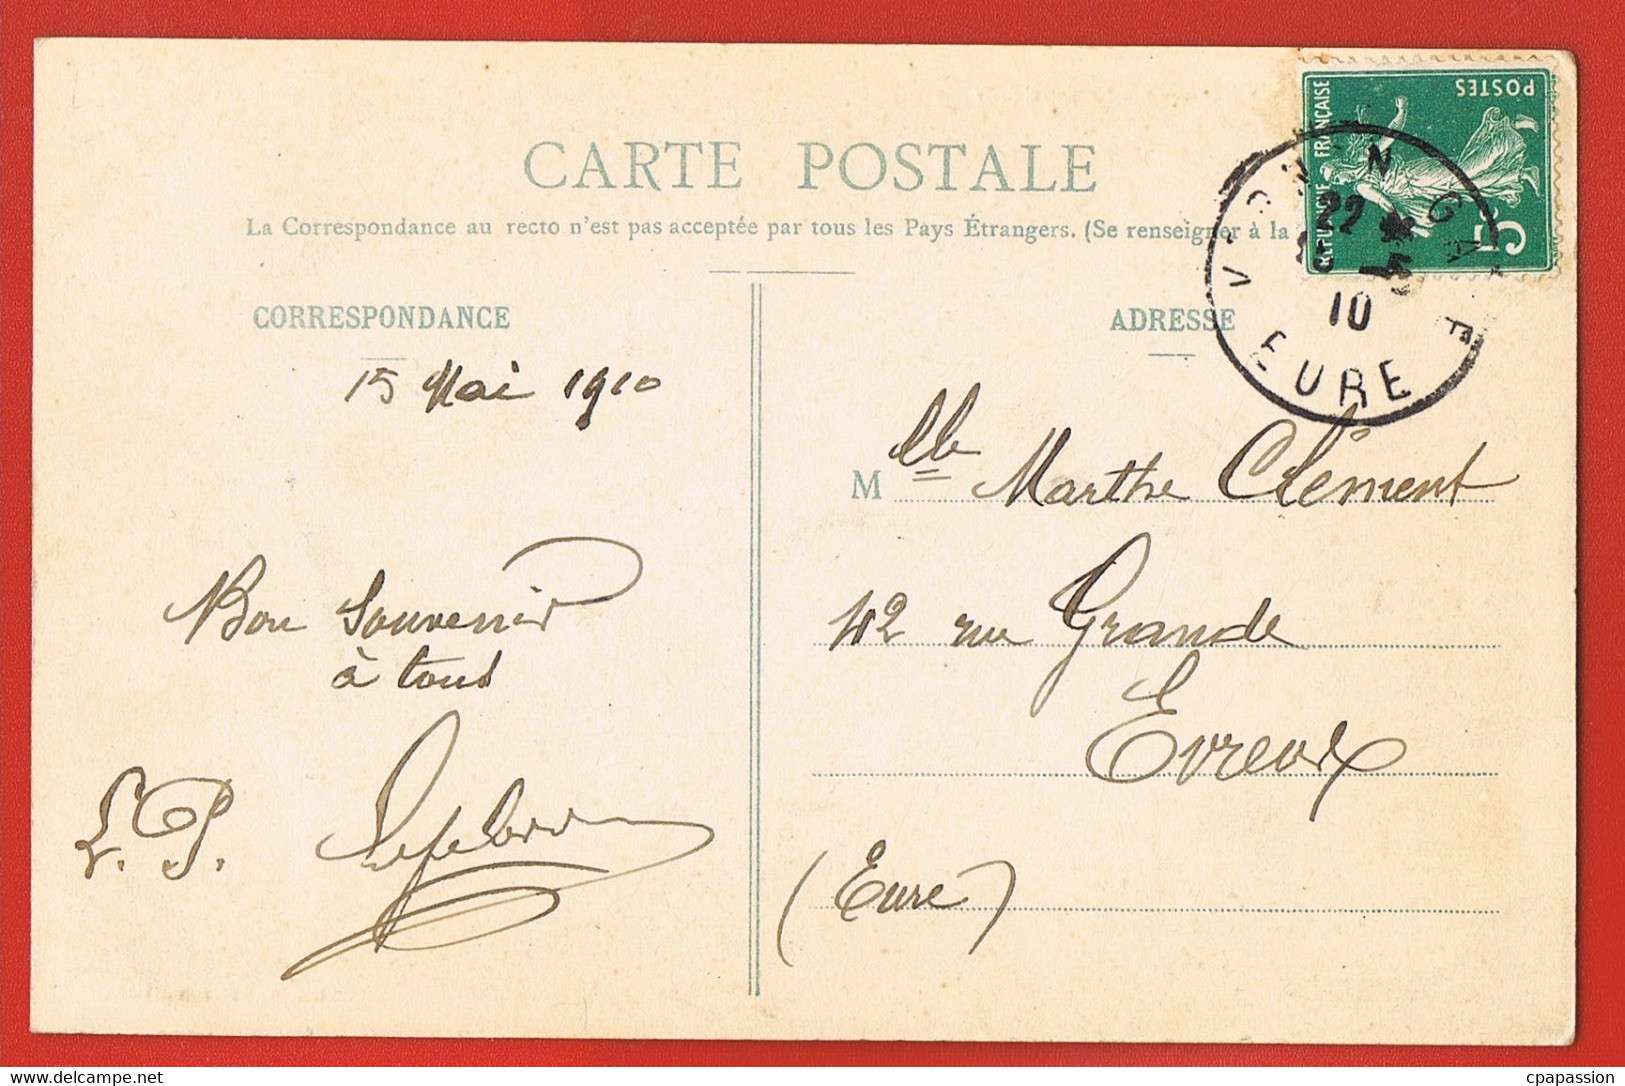 CARTE POSTALE
La Correspondance au recto n'est pas acceptée par tous les Pays Étrangers. (Se renseigner à la
CORRESPONDANCE
15 Mai 1910
Bon Souvenir
à tous
L. P. Lefebvre
ADRESSE
M lle Marthe Clément
42 rue Grande
Evreux
(Eure)
RÉPUBLIQUE FRANÇAISE
POSTES
5
22
10
EURE
cpapassion